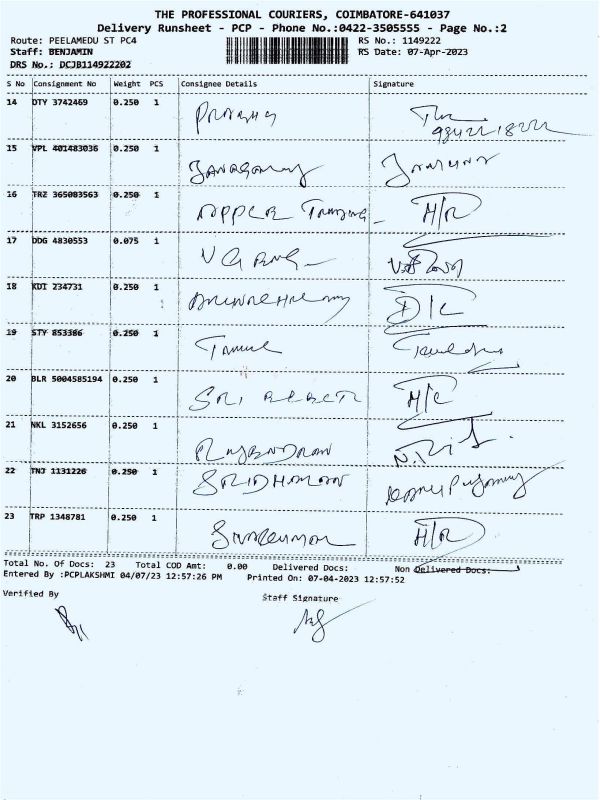 THE PROFESSIONAL COURIERS, COIMBATORE-641037
Delivery Runsheet - PCP - Phone No.:0422-3505555 - Page No.:2
Route: PEELAMEDU ST PC4 RS No.: 1149222
Staff: BENJAMIN RS Date: 07-Apr-2023
DRS No.: DCJB114922202
S No Consignment No Weight PCS Consignee Details Signature
14 DTY 3742469 0.250 1
15 VPL 401483036 0.250 1
16 TRZ 365083563 0.250 1 APPLE TRADING H/R
17 DDG 4830553 0.075 1
18 KDI 234731 0.250 1 D/C
19 STY 853386 0.250 1
20 BLR 5004585194 0.250 1 SRI H/C
21 NKL 3152656 0.250 1 RAJENDRAN
22 TNJ 1131226 0.250 1 SRIDHARAN
23 TRP 1348781 0.250 1 SIVAKUMAR H/R
Total No. Of Docs: 23 Total COD Amt: 0.00 Delivered Docs: Non Delivered Docs:
Entered By :PCPLAKSHMI 04/07/23 12:57:26 PM Printed On: 07-04-2023 12:57:52
Verified By Staff Signature